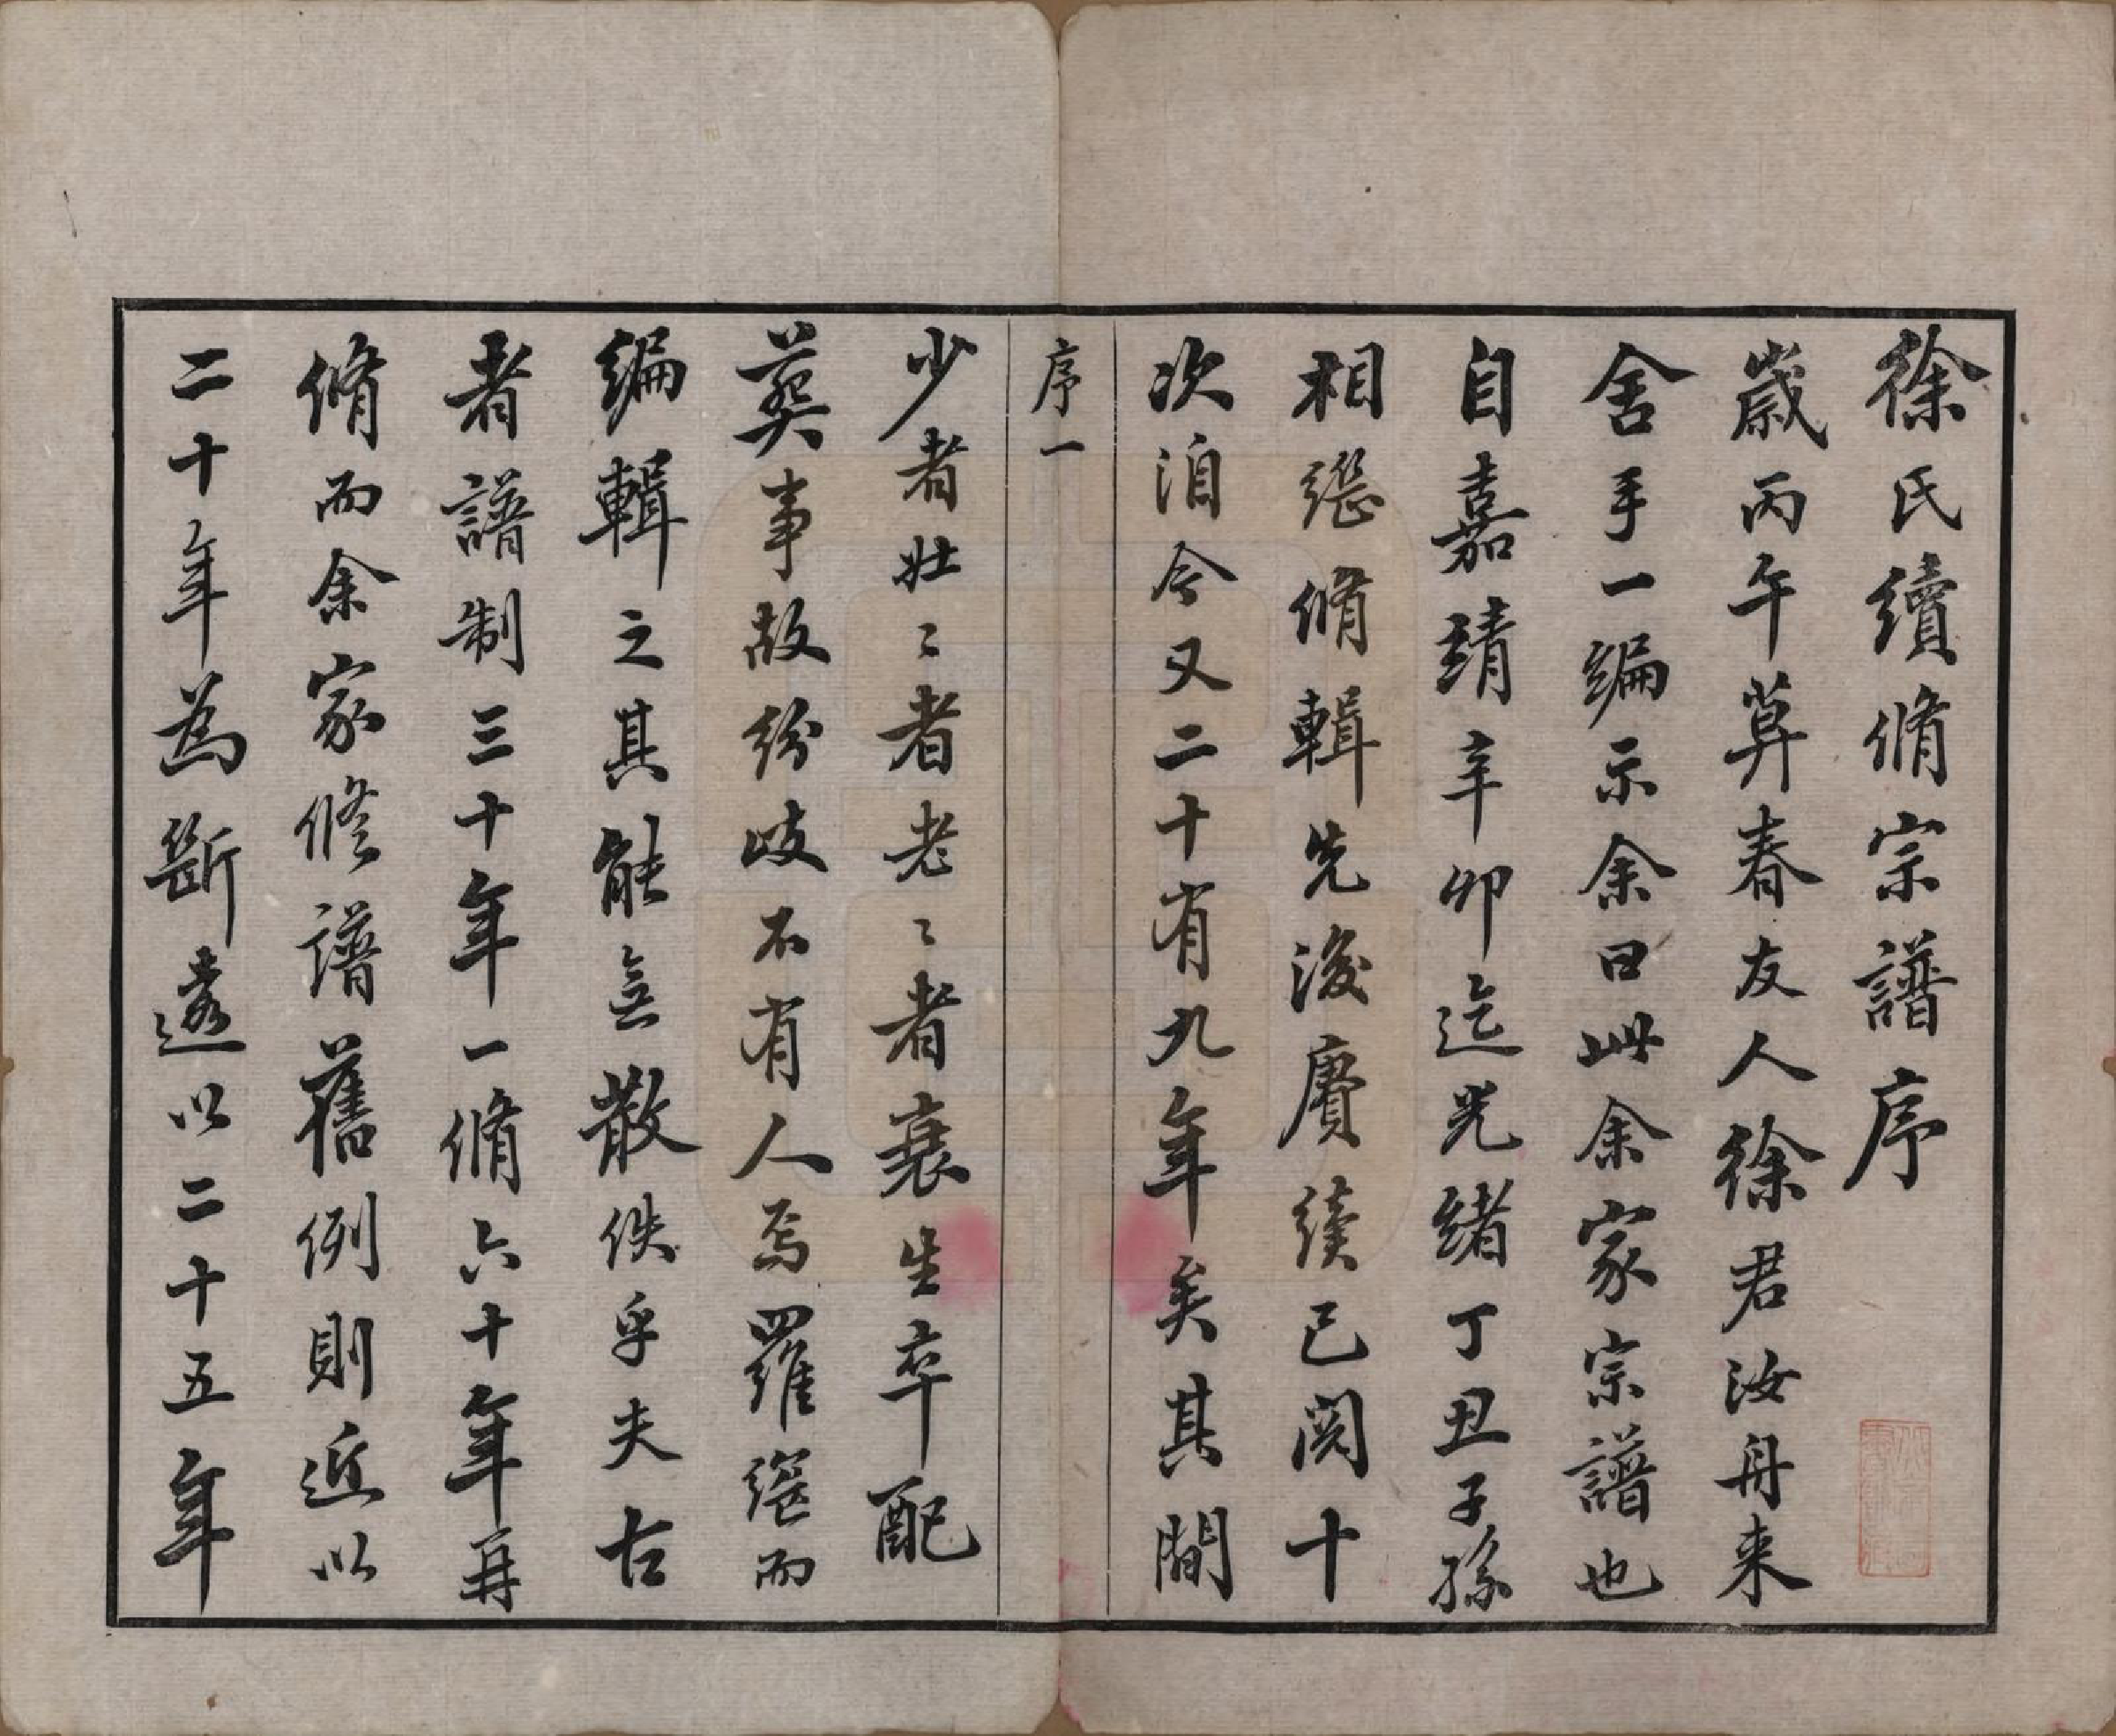 徐氏續脩宗譜序
歲丙午算春友人徐君汝舟来
舍手一編示余曰此余家宗譜也
自嘉靖辛卯迄光緒丁丑子孫
相繼脩輯先後賡續已閱十
次洎今又二十有九年矣其間
序一
少者壯〻者老〻者衰生卒配
葬事故紛歧不有人焉羅繼而
編輯之其能無散佚乎夫古
者譜制三十年一脩六十年再
脩而余家修譜舊例則近以
二十年為斷遠以二十五年